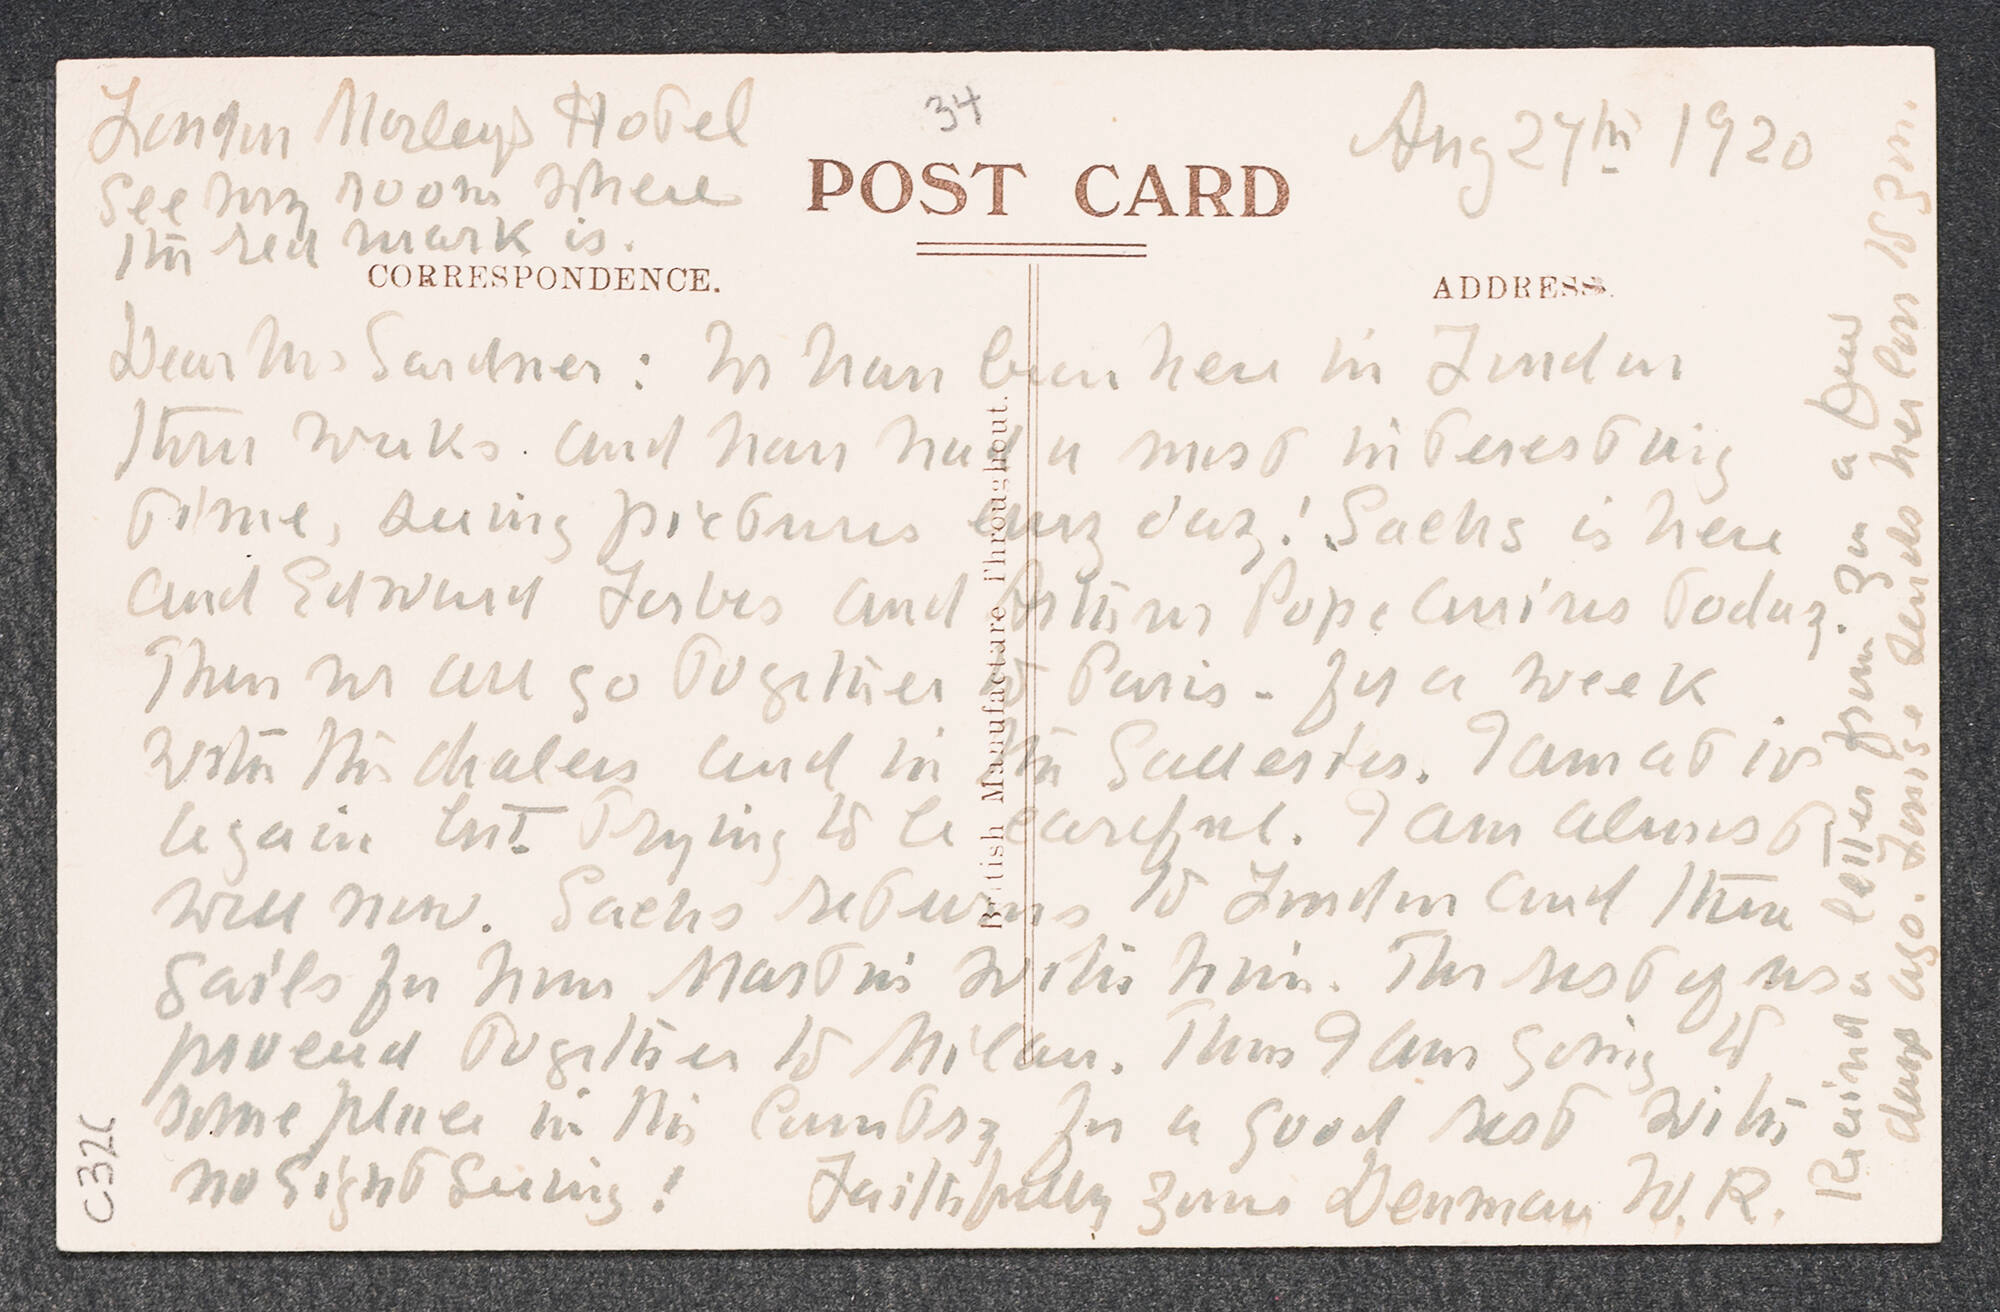 London Morley's Hotel
See my room where
the red mark is.
34
Aug 27th 1920
POST CARD
CORRESPONDENCE.
ADDRESS.
British Manufacture Throughout.
Dear Mrs Gardner: We have been here in London
three weeks. and have had a most interesting
time, seeing pictures every day! Sachs is here
and Edward Forbes and Arthur Pope arrives today.
Then we all go together to Paris - for a week
with the dealers and in the Galleries. I am at it
again but trying to be careful. I am almost
well now. Sachs returns to London and then
sails for home Martin with him. The rest of us
proceed together to Milan. Then I am going to
some place in the Country for a good rest with
no Sight Seeing! Faithfully yours Denman W. R.
Received a letter from you a few
days ago. Louise sends her love to you.
C32c